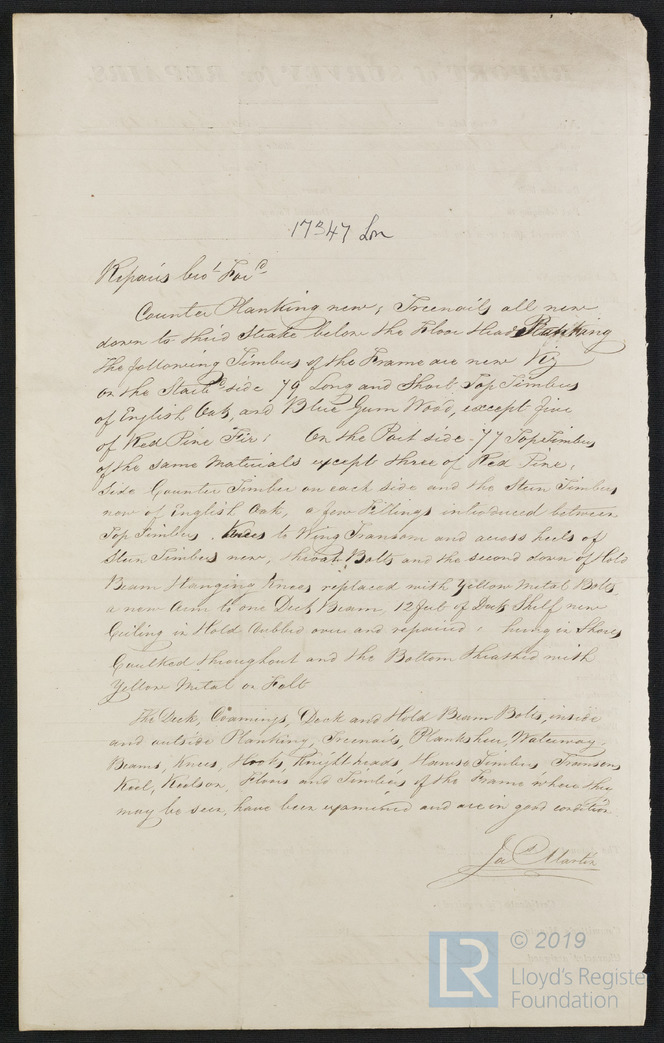 17347 Lon
Repairs
Counter Planking new, Treenails all new
down to third Strake below the Floor Heads Planking
The following Timbers of the Frame are new Viz
on the Starbd side 79 Long and Short Top Timbers
of English Oak, and Blue Gum Wood, except five
of Red Pine Fir; On the Port side 77 Top Timbers
of the same Materials except three of Red Pine,
Side Counter Timber on each side and the Stern Timbers
new of English Oak, a few Fillings introduced between
Top Timbers, Knees to Wing Transom and across heels of
Stern Timbers new, throat Bolts and the second down of Hold
Beam Hanging Knees replaced with Yellow Metal Bolts
a new Arm to one Deck Beam, 12 feet of Deck Shelf new
Ceiling in Hold dubbed over and repaired, hung in Shores
Caulked throughout and the Bottom Sheathed with
Yellow Metal on Felt
The Deck, Coamings, Deck and Hold Beam Bolts, inside
and outside Planking, Treenails, Planksheer, Waterway,
Beams, Knees, Hooks, Knightheads Hawse Timbers, Transom
Keel, Keelson, Floors and Timbers of the Frame where they
may be seen, have been examined and are in good condition
Martin
LR
© 2019
Lloyd's Registe
Foundation